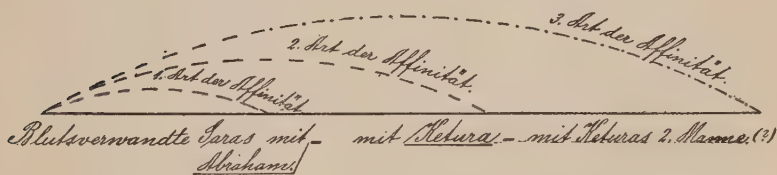 3. Art der Affinität.
2. Art der Affinität.
1. Art der Affinität
Blutsverwandte Saras mit – mit Ketura – mit Keturas 2. Manne. (?)
Abraham